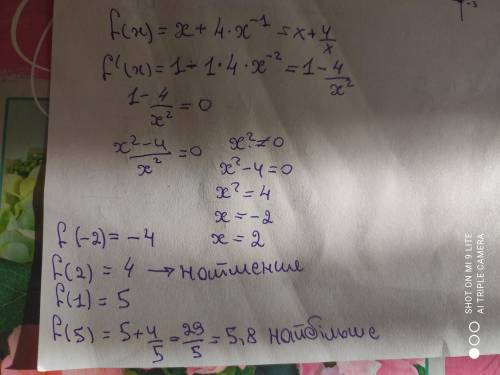 f(x) = x + 4·x⁻¹ = x + 4/x
f'(x) = 1 - 1·4·x⁻² = 1 - 4/x²
1 - 4/x² = 0
(x² - 4)/x² = 0
x² ≠ 0
x² - 4 = 0
x² = 4
x = -2
x = 2
f(-2) = -4
f(2) = 4 → найменше
f(1) = 5
f(5) = 5 + 4/5 = 29/5 = 5,8 найбільше
SHOT ON MI 9 LITE
AI TRIPLE CAMERA
-3